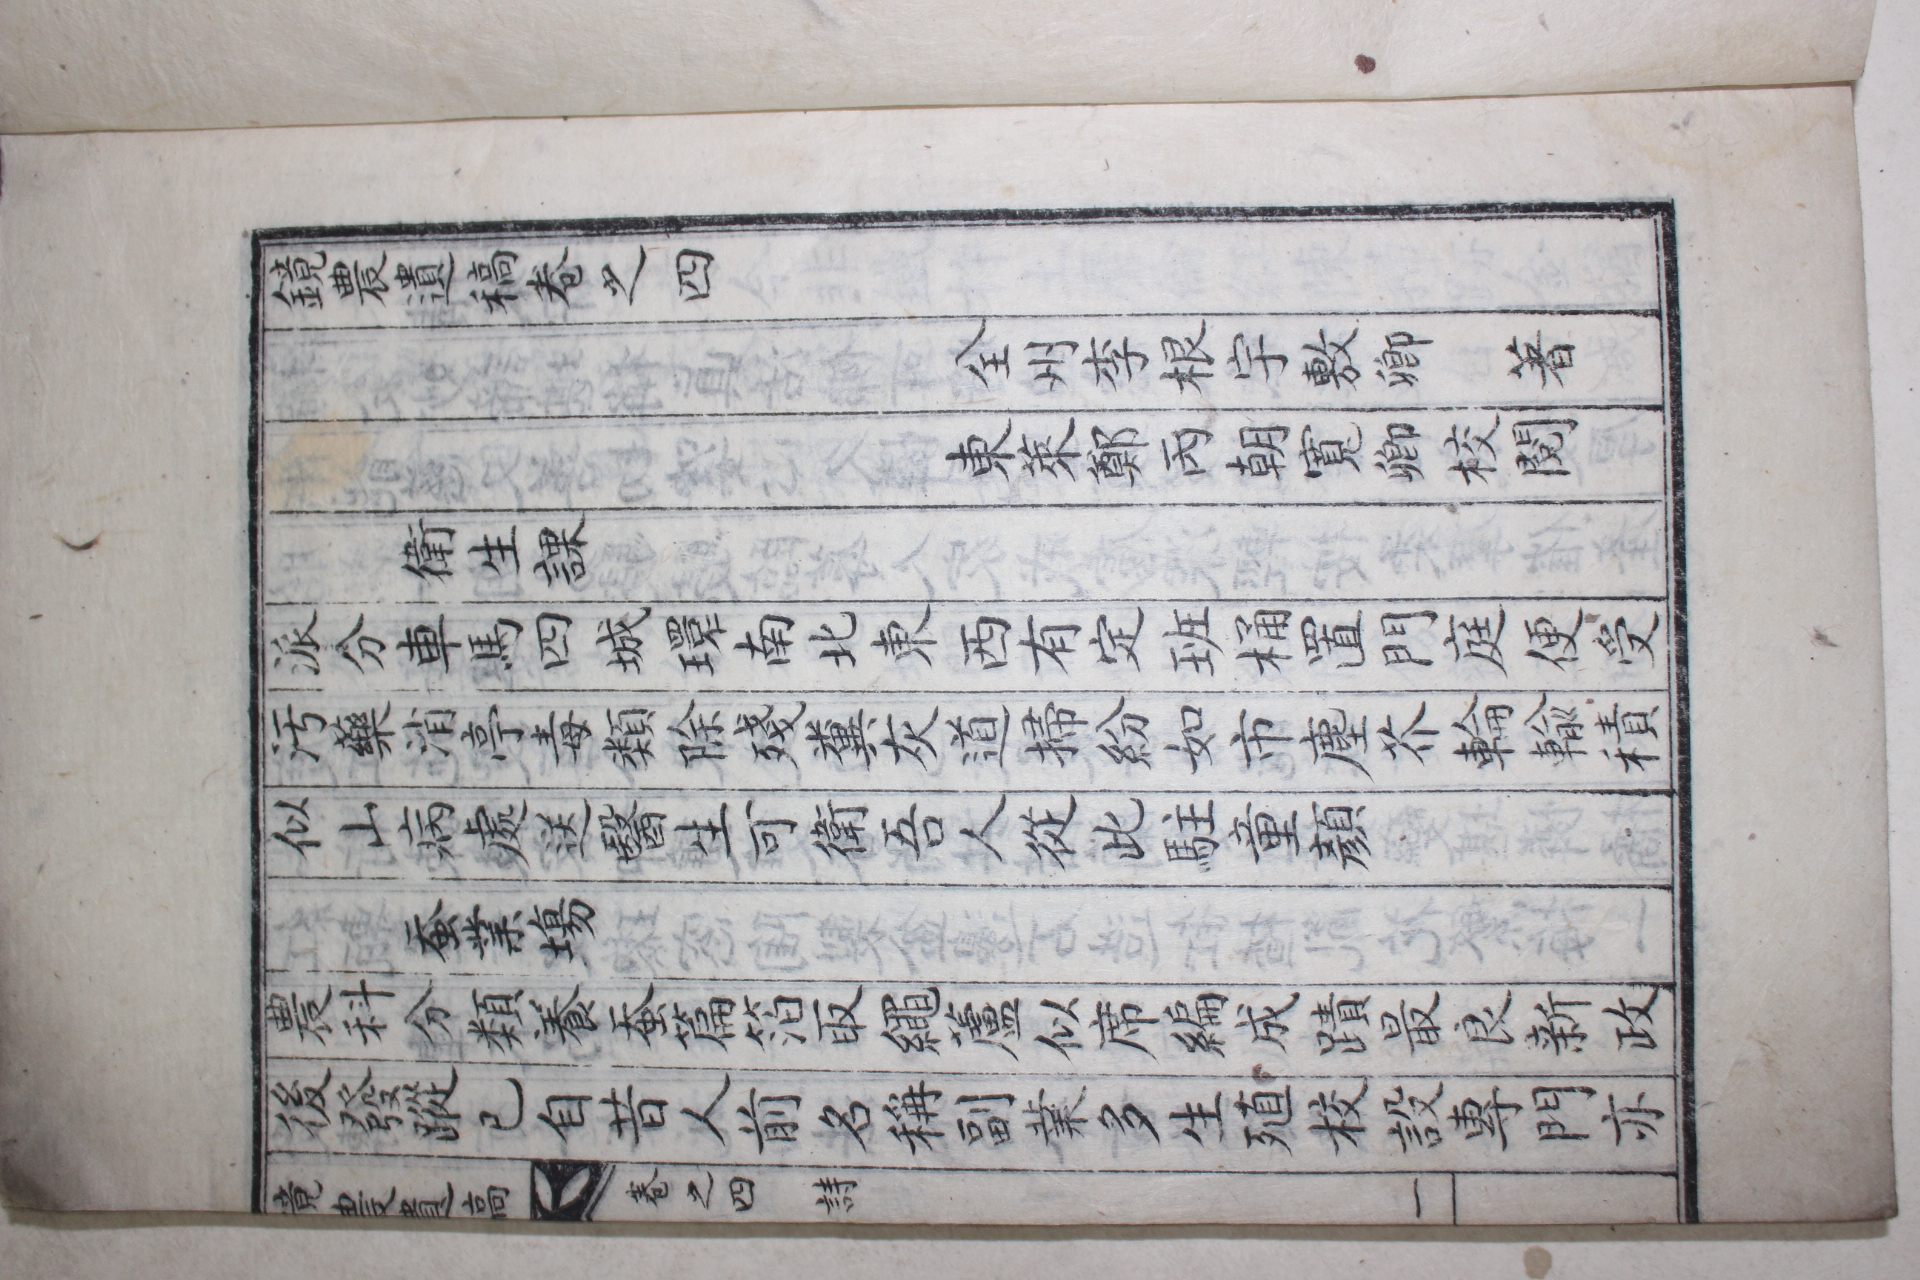 鏡農遺稿卷之四
全州李根宇敷卿 著
東萊鄭丙朝寬卿校閱
衛生課
派分車馬四城環南北東西有定班桶置門庭便受
汚藥消亭毒類除殘糞灰道掃紛如市塵芥輪輸積
似山病處送醫生可衛吾人從此駐童顏
蚕業場
農科分類養蚕篇箔取繩蘆似席編成蹟最良新政
後發蹤已自昔人前名稱副業多生殖校設專門亦
鏡農遺稿 卷之四 詩 一